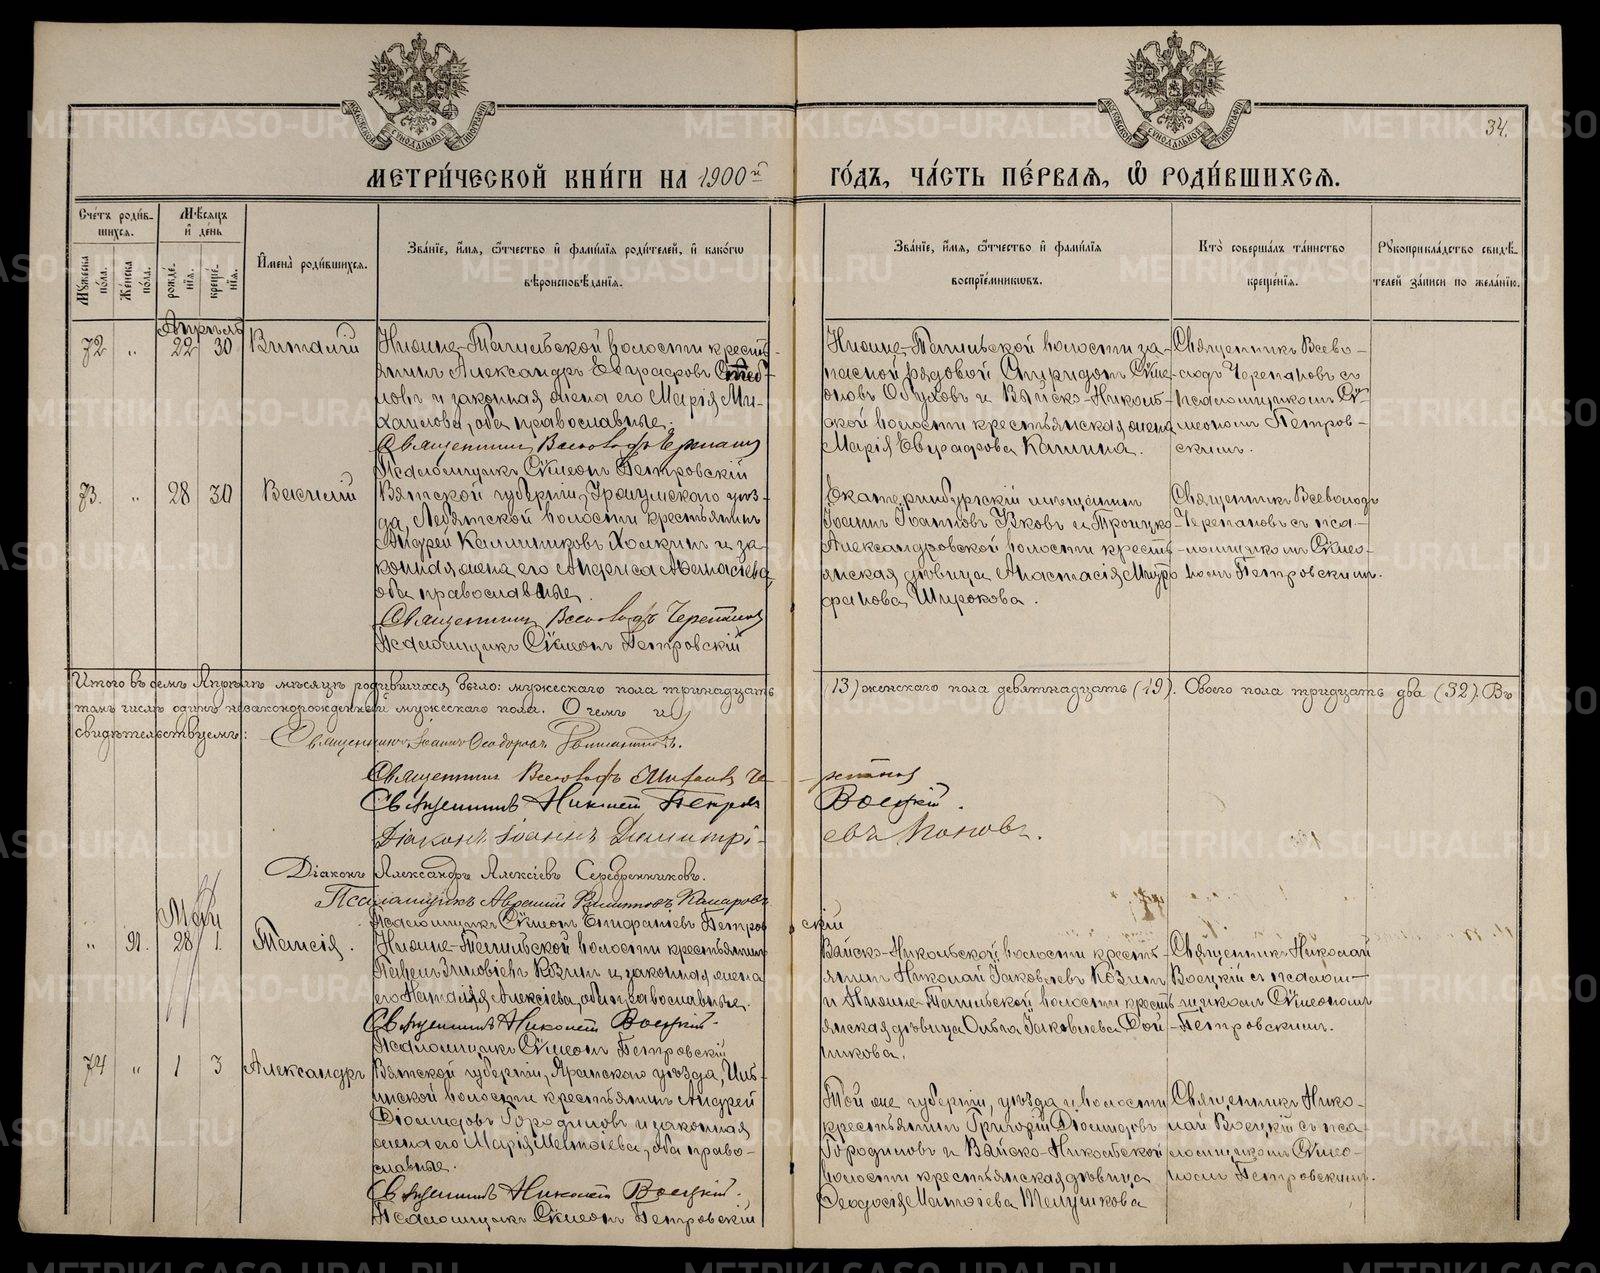 34.
МЕТРИ́ЧЕСКОЙ КНИ́ГИ НА 1900й ГО́ДЪ, ЧА́СТЬ ПЕ́РВАѦ, Ѡ РОДИ́ВШИХСѦ.
Сче́тъ роди́в-
шихся.
Мѣсяцъ
и де́нь
Му́жеска по́ла.
Же́нска по́ла.
рожде́нїя.
креще́нїя.
Имена̀ роди́вшихся.
Зва́нїе, и́мя, о́тчество и фами́лїя роди́телей, и како́гѡ
вѣроисповѣ́данїя.
Зва́нїе, и́мя, о́тчество и фами́лїя
воспрїе́мникѡвъ.
Кто̀ соверша́лъ та́инство
креще́нїя.
Рукоприкла́дство свидѣ́-
телей за́писи по жела́нїю.
Апрѣль
72 „ 22 30 Виталій
Нижне-Тагильской волости кресть-
янинъ Александръ Евграфовъ
и законная жена его Марія Ми-
хаилова, оба православные.
Священникъ Всеволодъ Черепановъ
Псаломщикъ Сѵмеонъ Петровскій
Нижне-Тагильской волости за-
пасной рядовой Спиридонъ Симе-
оновъ Обуховъ и Выйско-Николь-
ской волости крестьянская жена
Марія Евграфова Калинина.
Священникъ Всево-
лодъ Черепановъ съ
псаломщикомъ Сѵ-
меономъ Петров-
скимъ.
73. „ 28 30 Василій
Вятской губерніи, Уржумскаго уѣз-
да, Лебяжской волости крестьянинъ
Андрей Калинниковъ и за-
конная жена его Анфиса Аѳанасіева,
оба православные.
Священникъ Всеволодъ Черепановъ
Псаломщикъ Сѵмеонъ Петровскій
Екатеринбургскій мѣщанинъ
Іоаннъ Іоанновъ и Троицко-
Александровской волости кресть-
янская дѣвица Анастасія Митро-
фанова Широкова.
Священникъ Всеволодъ
Черепановъ съ пса-
ломщикомъ Сѵмео-
номъ Петровскимъ.
Итого въ семъ Апрѣлѣ мѣсяцѣ родившихся было: мужескаго пола тринадцать (13) женскаго пола девятнадцать (19). Обоего пола тридцать два (32). Въ
томъ числѣ одинъ незаконорожденный мужескаго пола. О чемъ и
свидѣтельствуемъ: Священникъ Іоаннъ Ѳеодоровъ
Священникъ Всеволодъ Михаиловъ Черепановъ
Священникъ Николай Петровъ Воецкій.
Діаконъ Іоаннъ Димитріевъ Поповъ.
Діаконъ Александръ Алексіевъ Серебренниковъ.
Псаломщикъ Авраамій Филипповъ Комаровъ
Псаломщикъ Сѵмеонъ Епифаніевъ Петровскій
Май
„ 91. 28 1 Таисія.
Нижне-Тагильской волости крестьянинъ
Павелъ Зиновіевъ Козинъ и законная жена
его Наталія Алексіева, оба православные.
Священникъ Николай Воецкій.
Псаломщикъ Сѵмеонъ Петровскій
Выйско-Никольской волости кресть-
янинъ Николай Іаковлевъ Козинъ
и Нижне-Тагильской волости кресть-
янская дѣвица Ольга Іаковлева Дой-
никова.
Священникъ Николай
Воецкій съ псалом-
щикомъ Сѵмеономъ
Петровскимъ.
74 „ 1 3 Александръ
Вятской губерніи, Яранскаго уѣзда,
волости крестьянинъ Андрей
Діомидовъ Городиловъ и законная
жена его Марія Матѳіева, оба право-
славные.
Священникъ Николай Воецкій.
Псаломщикъ Сѵмеонъ Петровскій
Той же губерніи, уѣзда и волости
крестьянинъ Григорій Діомидовъ
Городиловъ и Выйско-Никольской
волости крестьянская дѣвица
Ѳеодосія Матѳіева Телушкова
Священникъ Нико-
лай Воецкій съ пса-
ломщикомъ Сѵмео-
номъ Петровскимъ.
METRIKI.GASO-URAL.RU